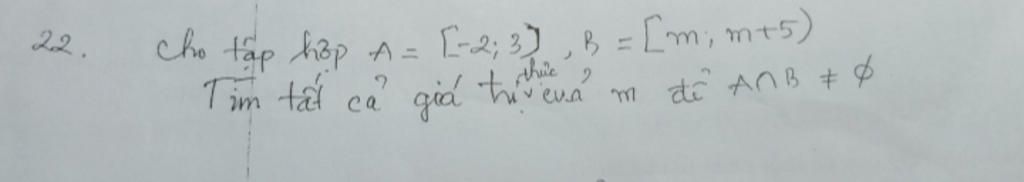 22. Cho tập hợp A = [-2; 3], B = [m; m+5)
Tìm tất cả giá trị thực của m để A∩B ≠ ∅